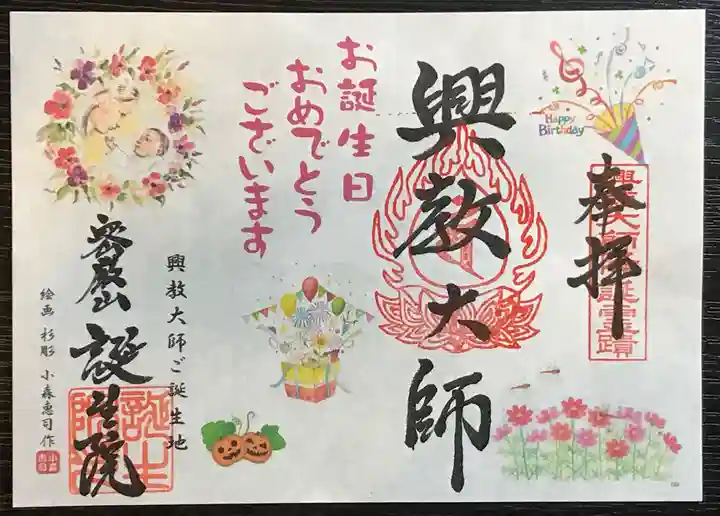 Happy
Birthday
奉拝
興教大師
お誕生日
おめでとう
ございます
興教大師ご誕生地
密厳山 誕生院
絵画 杉彫 小森惠司作